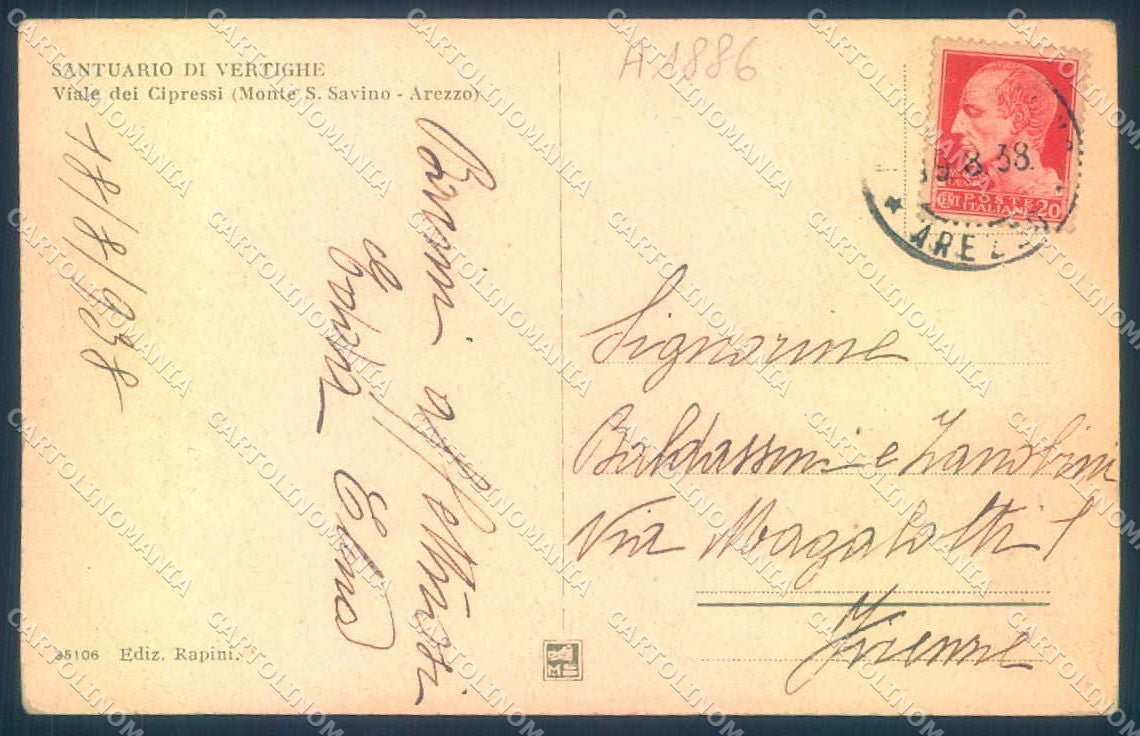 SANTUARIO DI VERTIGHE
Viale dei Cipressi (Monte S. Savino - Arezzo)
A1886
18/8/938
affettuosi
Elma
Signorine
Baldassini e Zanobini
Via Magalotti 1
Firenze
19.8.38.
AREZ
POSTE
CENT ITALIANE 20
35106 Ediz. Rapini.
CARTOLINOMANIA